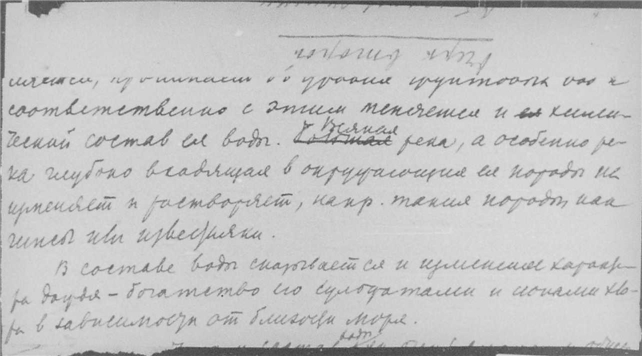 соответственно с этим меняется и хими-
ческий состав ея воды. Всякая река, а особенно ре-
ка глубоко входящая в окружающия ея породы их
изменяет и растворяет, напр. такия породы как
гипсы или известняки.
В составе воды сказывается и изменение характе-
ра дождя – богатство его сульфатами и ионами хло-
ра в зависимости от близости моря.